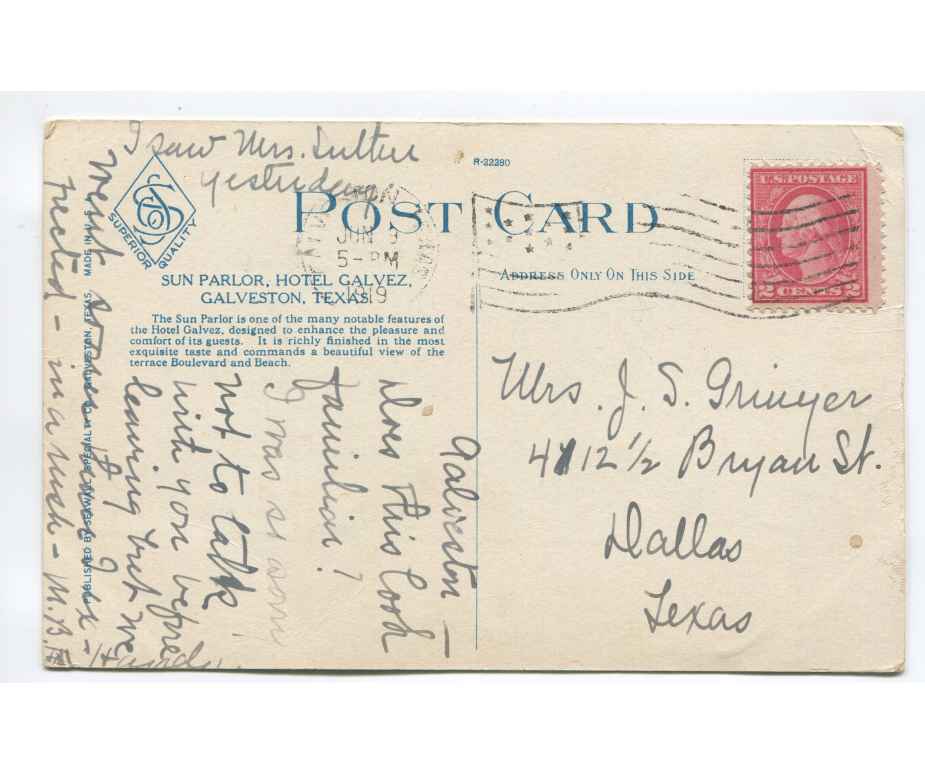 I saw Mrs. Sutton
yesterday
R-22280
U.S. POSTAGE
2 CENTS 2
SUPERIOR QUALITY
POST CARD
JUN 9
5-PM
1919
SUN PARLOR, HOTEL GALVEZ,
GALVESTON, TEXAS
ADDRESS ONLY ON THIS SIDE
The Sun Parlor is one of the many notable features of
the Hotel Galvez, designed to enhance the pleasure and
comfort of its guests. It is richly finished in the most
exquisite taste and commands a beautiful view of the
terrace Boulevard and Beach.
PUBLISHED BY SEAWALL SPECIALTY CO. GALVESTON, TEXAS. MADE IN U.S.A.
Galveston —
Does this look
familiar?
I was so sorry
not to talk
with you before
leaving but we
went
- in a rush - M. B. H
Mrs. J. S. Grinyer
4112 1/2 Bryan St.
Dallas
Texas